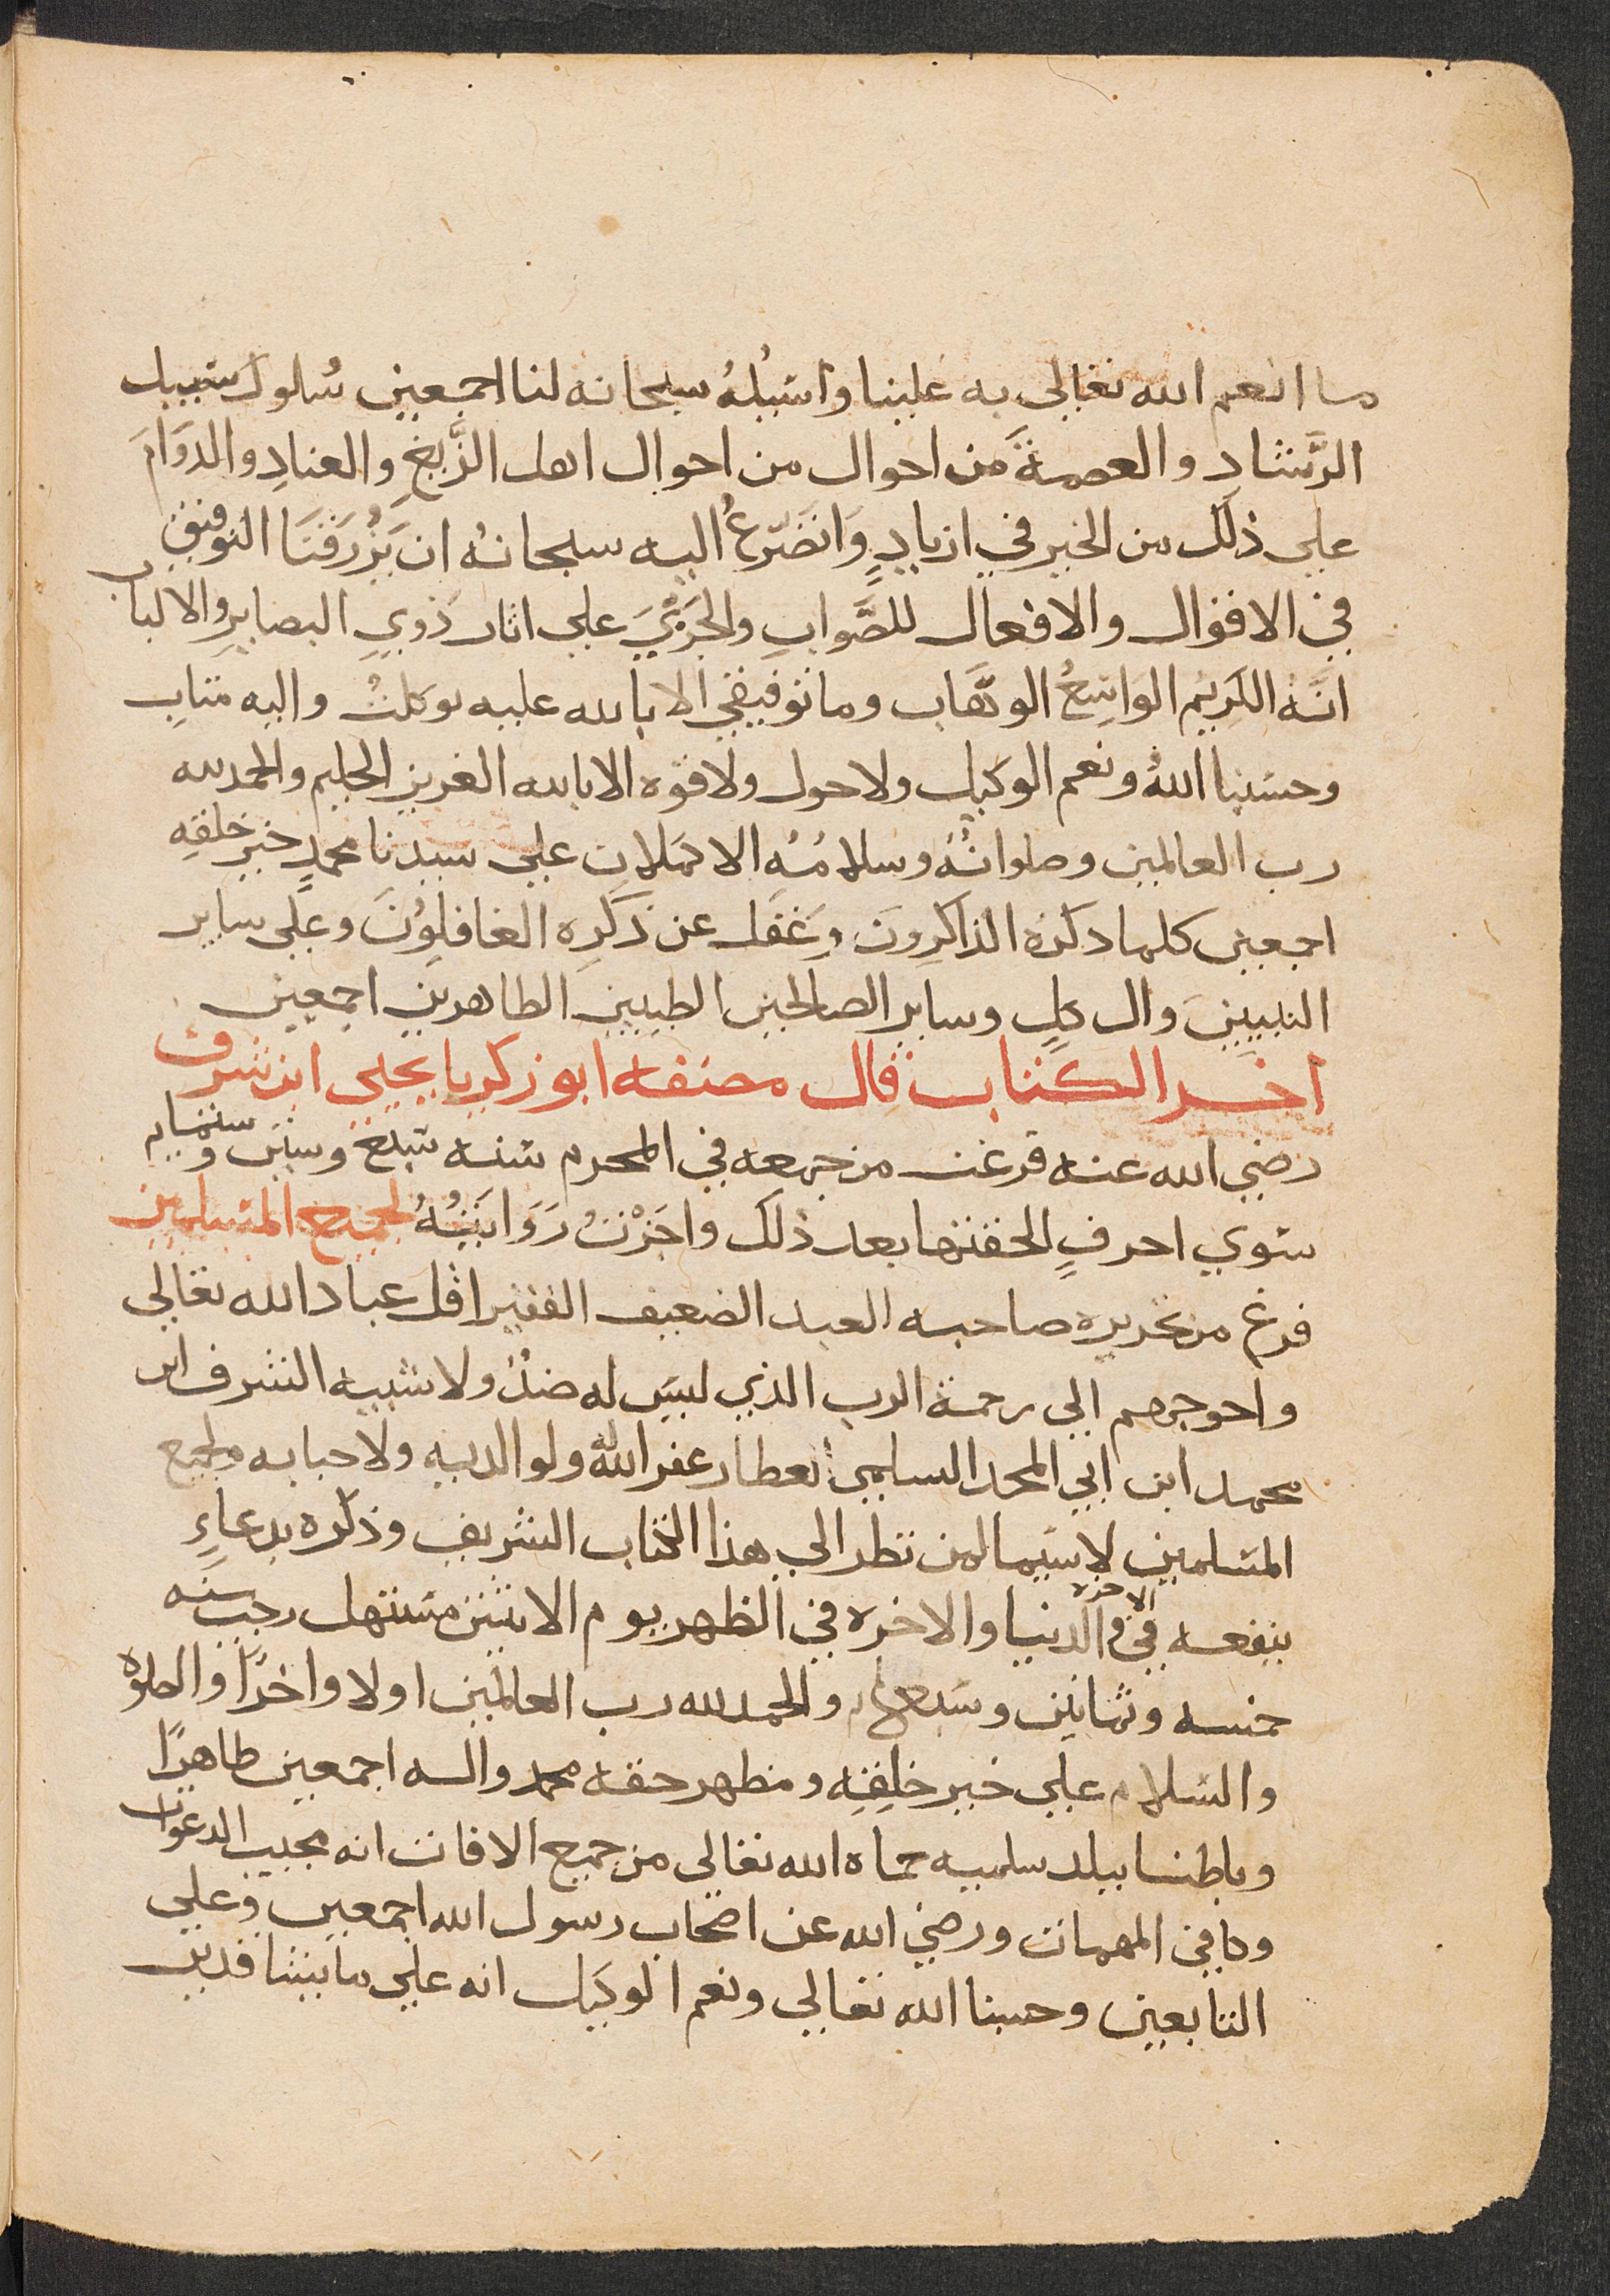 ما انعم الله تعالى به علينا واسئله سبحانه لنا اجمعين سُلوك سبيل
الرَّشاد والعصمةَ من احوال من احوال اهل الزَّيغِ والعنادِ والدوَامَ
على ذلك من الخير في ازيادٍ وَاتضَرّعُ اليه سبحانهُ ان يَرْزقنَا التوفيق
في الاقوال والافعال للصَّوابِ والجَرْيَ على اثار ذَوِي البصايرِ والالباب
انَّه الكريم الواسِعُ الوهَّاب وما توفيقي الا بالله عليه توكلتُ واليه متابِ
وحسبنا اللهُ ونعم الوكيل ولا حول ولا قوه الا بالله العزيز الحكيم والحمد لله
رب العالمين وصلواتُهُ وسلامُهُ الاكملان على سيدنا محمدٍ خير خلقِهِ
اجمعين كلما ذكرَهُ الذاكرِونَ وغَفَل عن ذكرِهِ الغافلِوُنَ وعَلى ساير
النبيينَ وال كلٍ وساير الصالحين الطيبين الطاهرين اجمعين
اخر الكتاب قال مصنفه ابو زكريا يحيى ابن شرف
رضي الله عنه فرغت من جمعه في المحرم سنه سبع وستين وستمايه
سوي احرفٍ الحقتها بعد ذلك واجَزْتُ رَوَايَتُهُ لجميع المسلمين
فرغ من تحريره صاحبه العبد الضعيف الفقير اقل عباد الله تعالى
واحوجهم الى رحمة الرب الذي ليس له ضدٌ ولا شبيه الشرف ابن
محمد ابن ابي المجد السلمي العطار غفر الله له ولوالديه ولاحبابه ولجميع
المسلمين لا سيما لمن نظر الى هذا الكتاب الشريف وذكره بدعاءٍ
ينفعه في الدنيا والاخره في الظهر يوم الاثنين مستهل رجب سنه
خمسه وثمانين وسبعمايه والحمد لله رب العالمين اولا واخرًا والصلوة
والسلام على خير خلقِهِ ومظهر حقه محمد واله اجمعين ظاهرًا
وباطنا ببلد سلميه حماه الله تعالى من جميع الافات انه مجيب الدعوات
وكافي المهمات ورضي الله عن اصحاب رسول الله اجمعين وعلى
التابعين وحسبنا الله تعالى ونعم الوكيل انه على ما يشا قدير